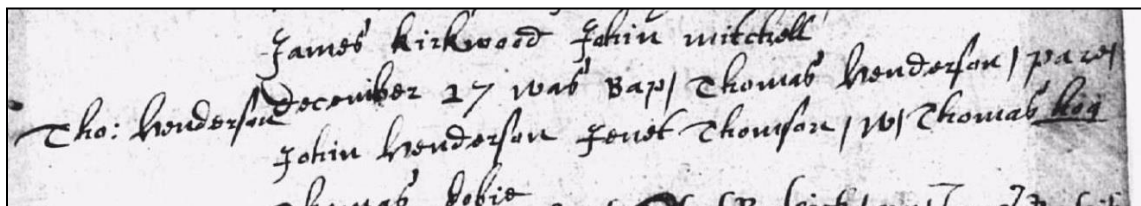 James kirkwood John mitchell
Tho: Henderson december 17 was Bap/ Thomas Henderson / pare/
John Henderson Jenet Thomson / W/ Thomas hog
Thomas